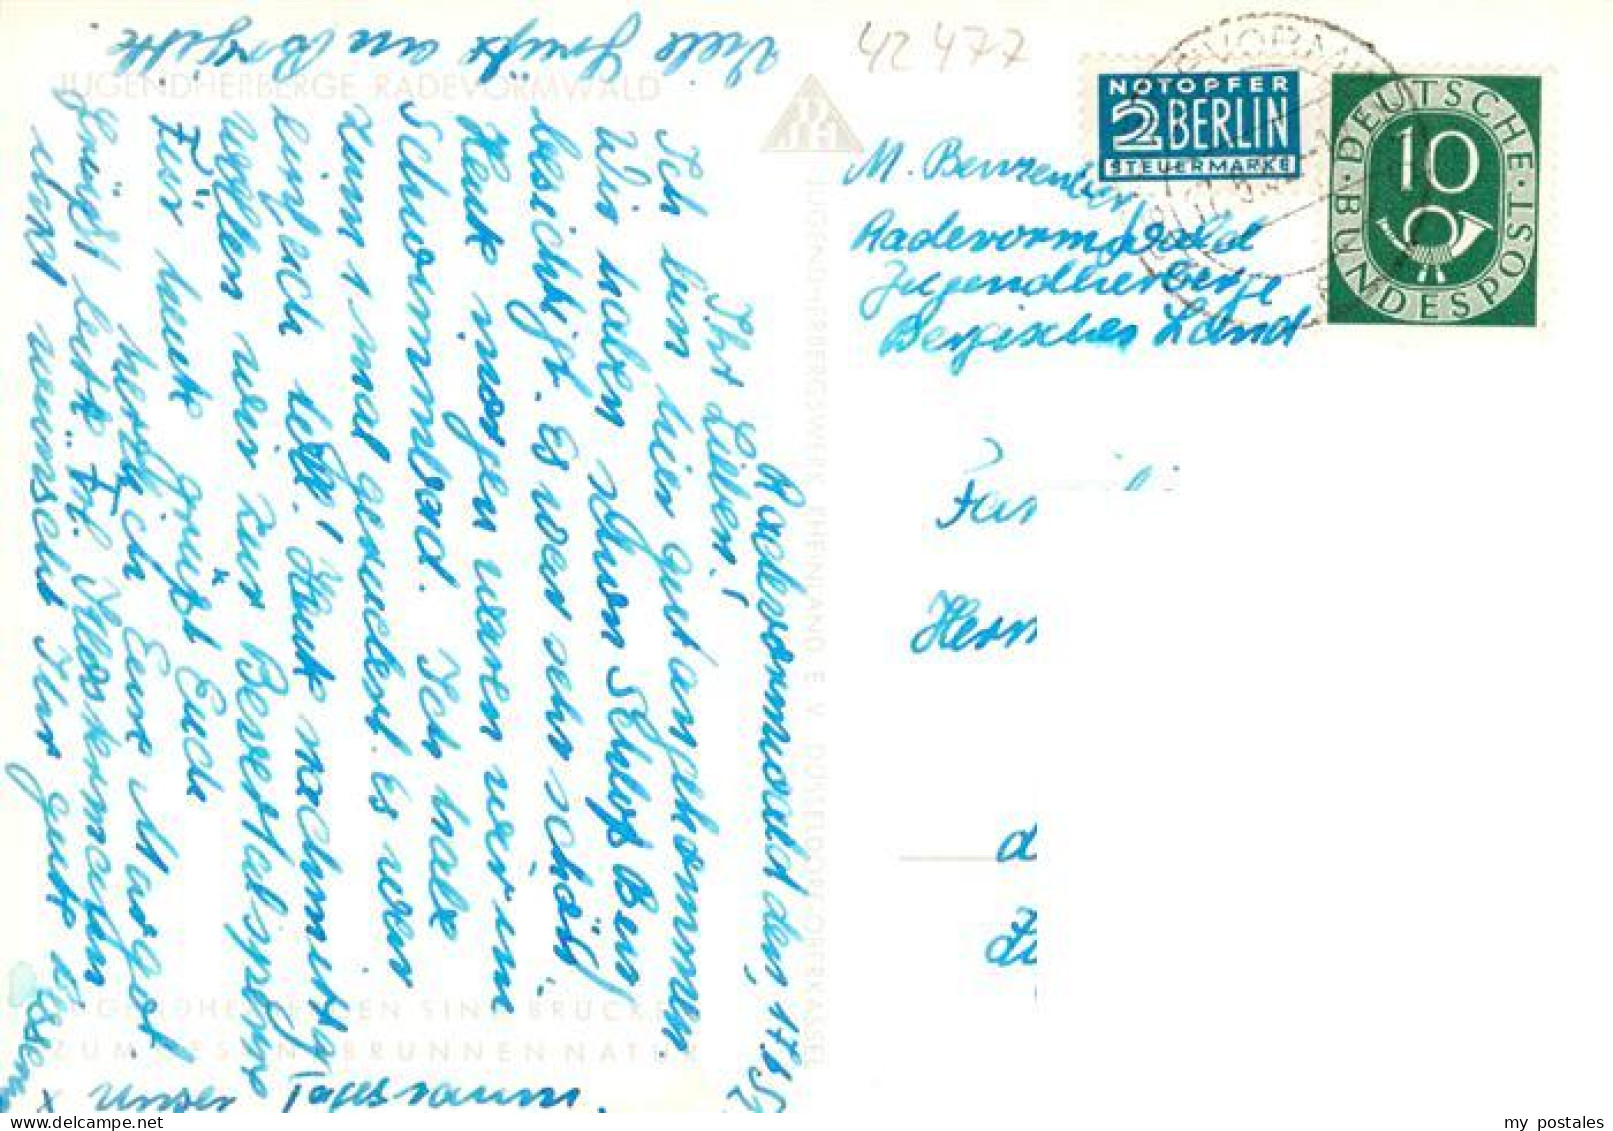 Viele Grüße an Borgette.
JUGENDHERBERGE RADEVORMWALD
Radevormwald, den 17.6.52
Ihr Lieben!
Ich bin hier gut angekommen
Wir haben schon Schloß Burg
besichtigt. Es war sehr schön.
Heute morgen waren wir im
Schwimmbad. Ich habe
zum 1 mal gerudert. Es war
einfach toll! Heute nachmittag
wollen wir zur Bevertalsperre
Für heute grüßt Euch
herzlich Eure Margot.
Grüßt bitte Frl.
und wünscht Ihr gute
JUGENDHERBERGEN SIND BRÜCKEN
ZUM NATUR
JUGENDHERBERGSWERK RHEINLAND E. V. DÜSSELDORF-OBERKASSEL
42477
NOTOPFER
2 BERLIN
STEUERMARKE
DEUTSCHE BUNDESPOST
10
M. Benzenberg
Radevormwald
Jugendherberge
Bergisches Land
my postales